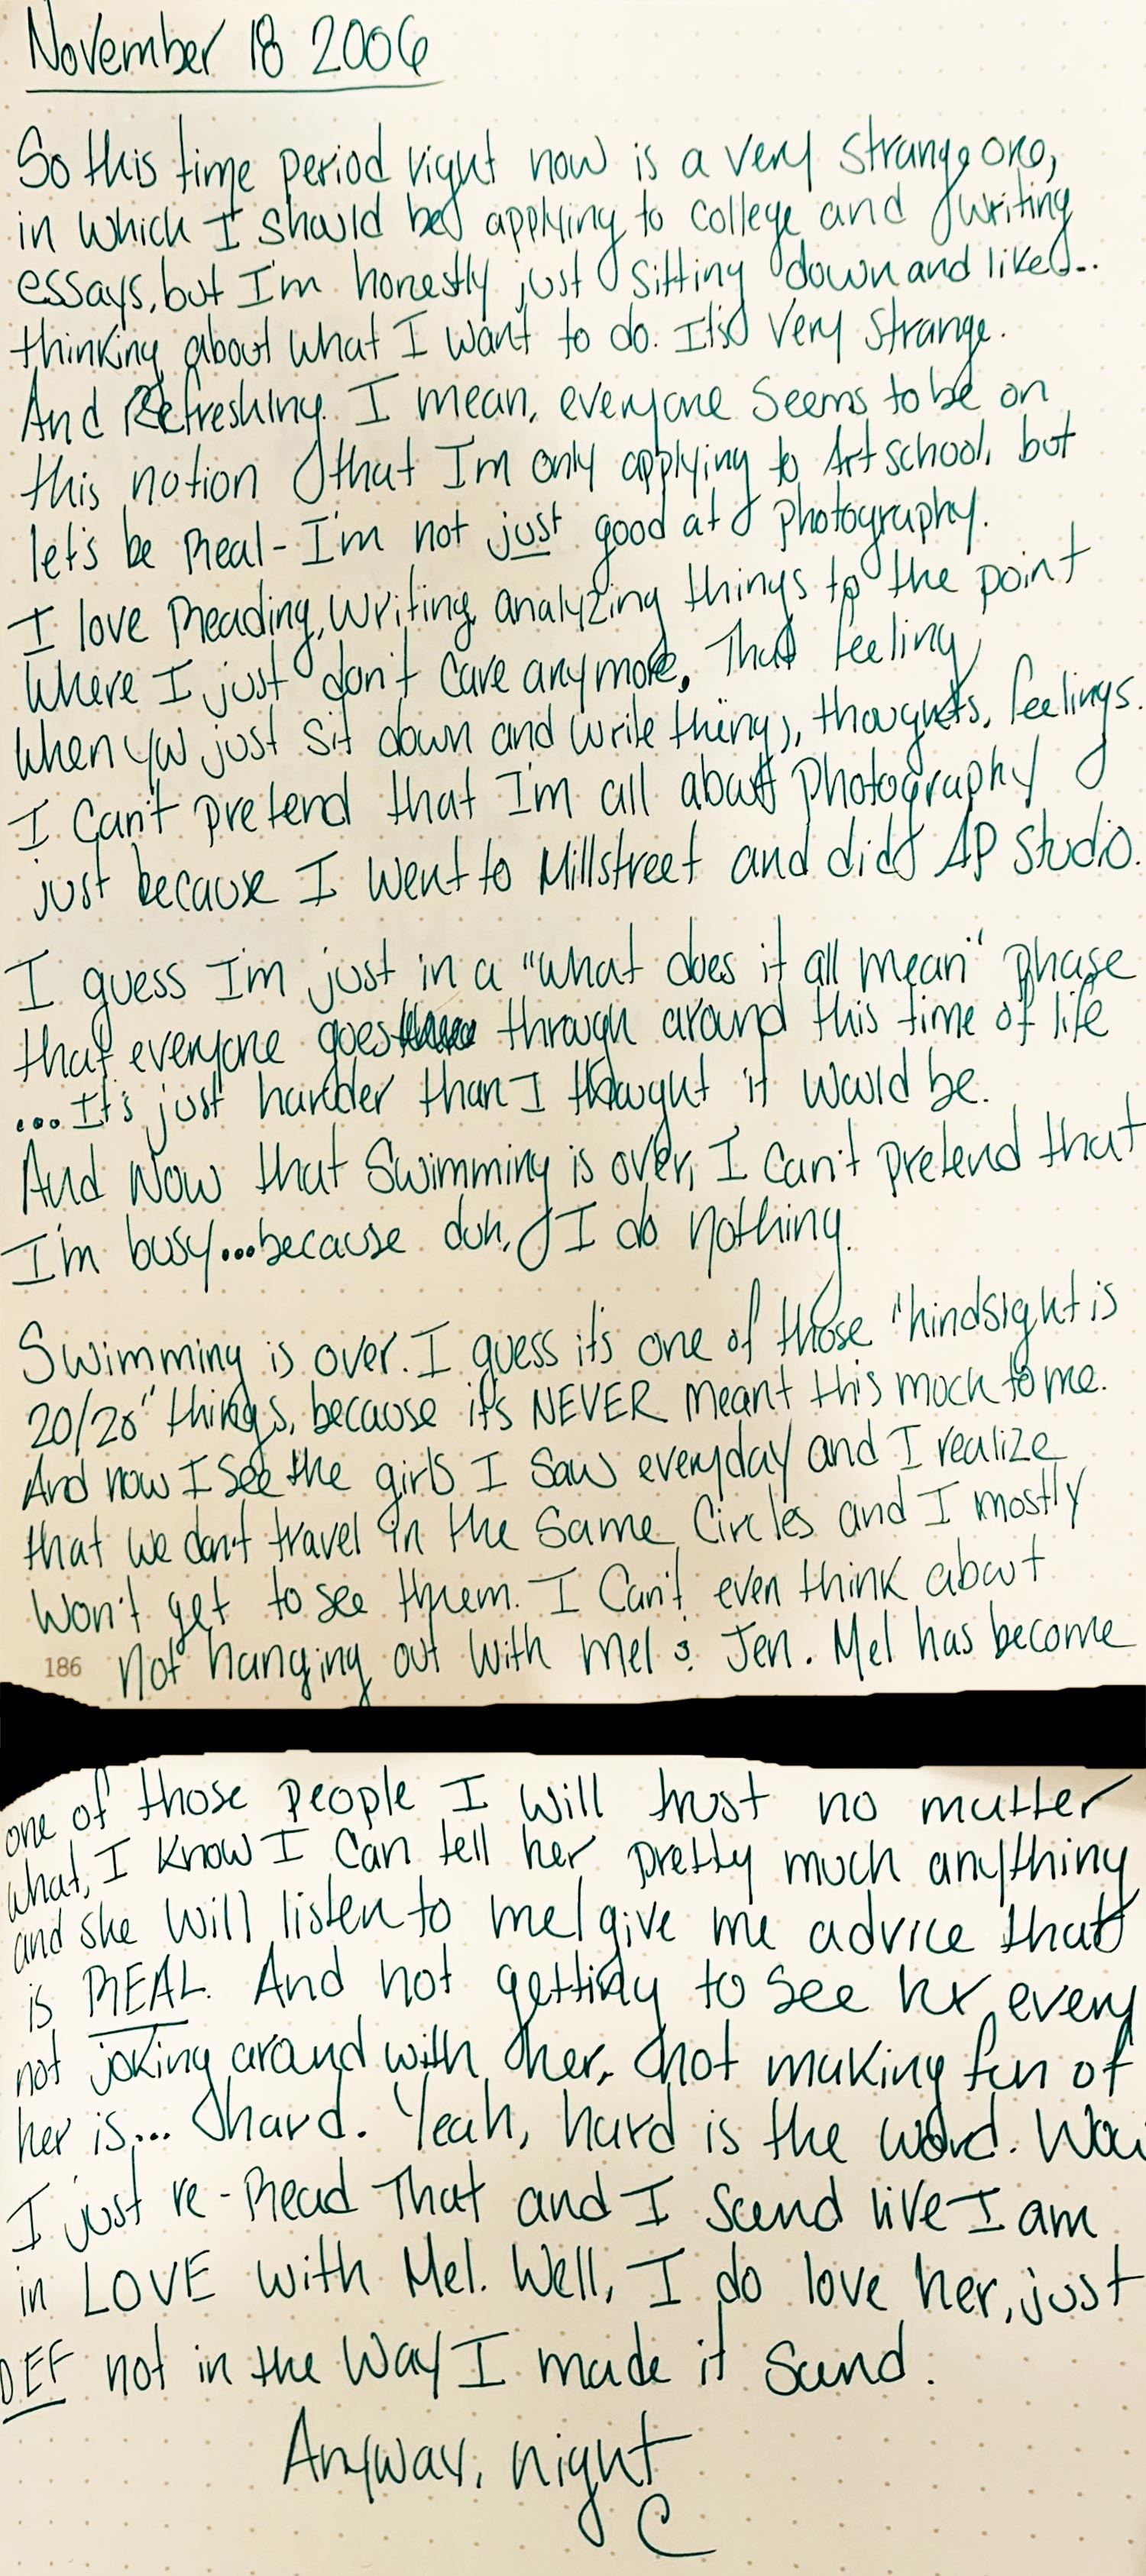 November 18 2006
So this time period right now is a very strange one,
in which I should be applying to college and writing
essays, but I'm honestly just sitting down and like...
thinking about what I want to do. It's very strange.
And Refreshing. I mean, everyone seems to be on
this notion that I'm only applying to Art school, but
let's be Real - I'm not just good at photography.
I love Reading, writing, analyzing things to the point
where I just don't care anymore. That feeling
when you just sit down and write things, thoughts, feelings.
I can't pretend that I'm all about photography
just because I went to Millstreet and did AP Studio.
I guess I'm just in a "what does it all mean" phase
that everyone goes through around this time of life
...It's just harder than I thought it would be.
And Now that Swimming is over, I can't pretend that
I'm busy...because duh, I do nothing.
Swimming is over. I guess it's one of those "hindsight is
20/20" things, because it's NEVER meant this much to me.
And now I see the girls I saw everyday and I realize
that we don't travel in the same circles and I mostly
won't get to see them. I can't even think about
186 not hanging out with Mel & Jen. Mel has become
one of those people I will trust no matter
what, I know I can tell her pretty much anything
and she will listen to me/give me advice that
is REAL. And not getting to see her every
not joking around with her, not making fun of
her is... hard. Yeah, hard is the word. Wow
I just re-Read That and I sound live I am
in LOVE with Mel. Well, I do love her, just
DEF not in the way I made it sound.
Anyway, night
C